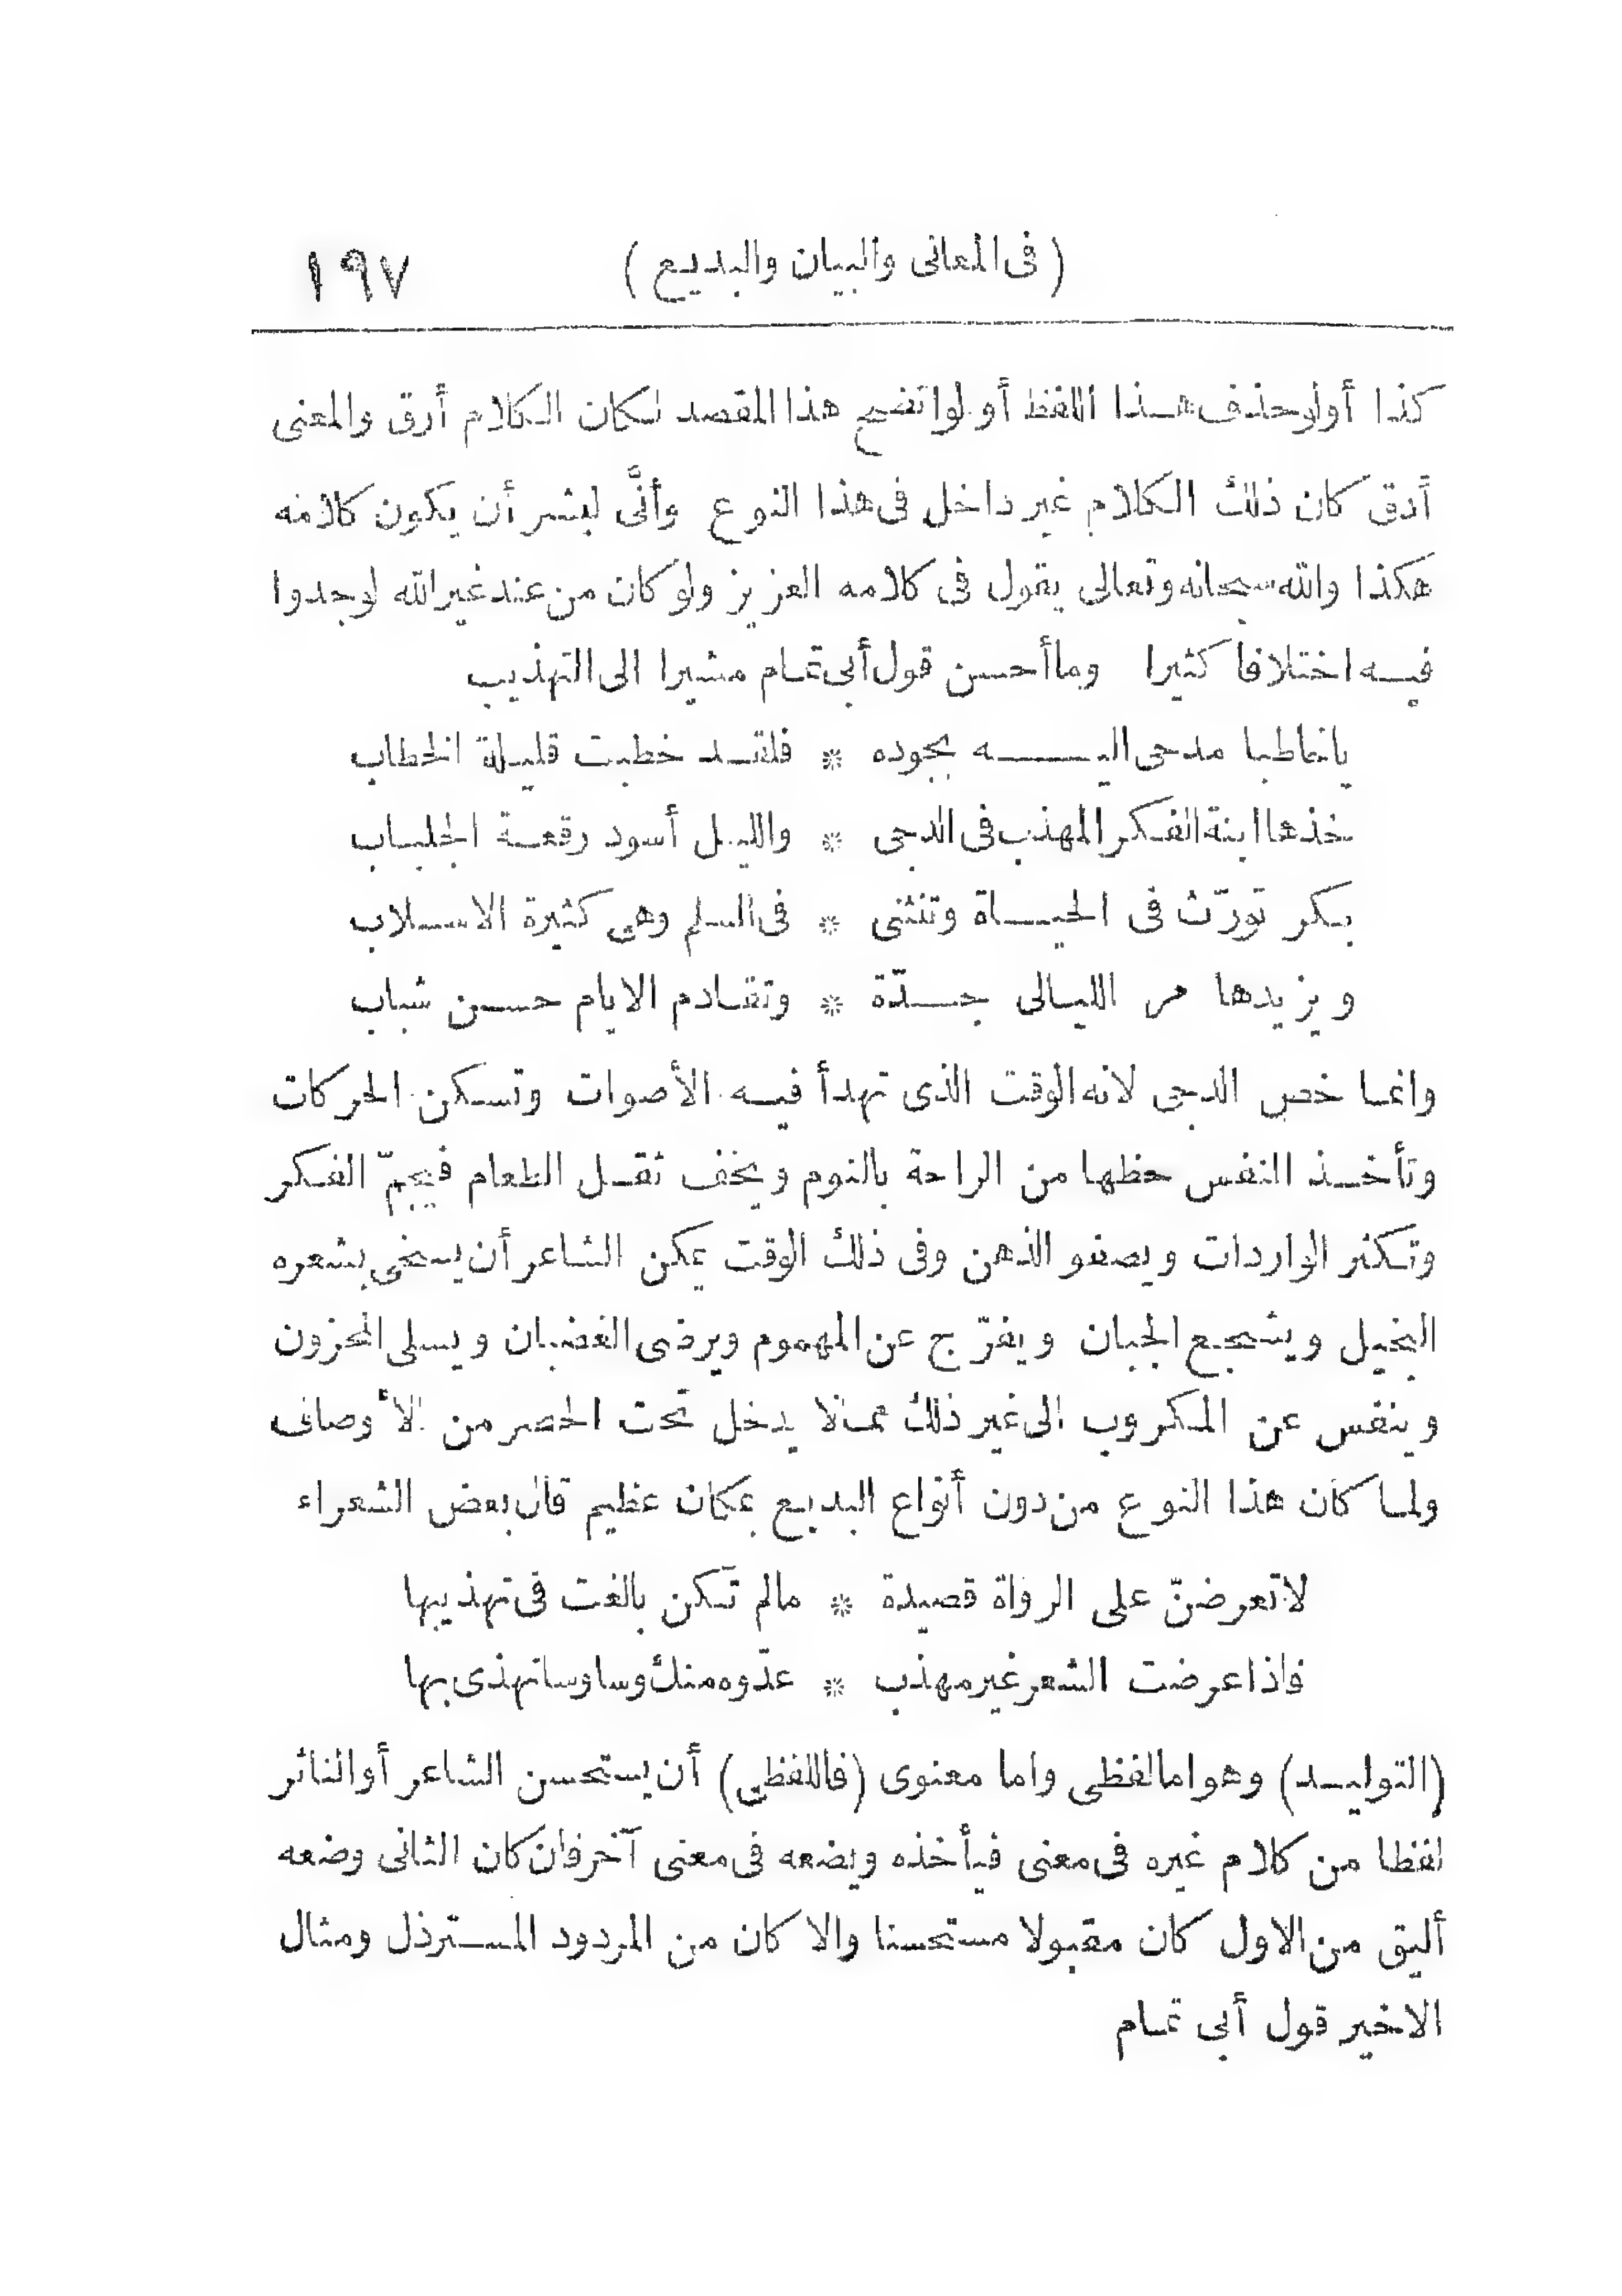 (فى المعانى والبيان والبديع) ١٩٧
كذا أولوحذف هذا اللفظ أو لو اتضح هذا المقصد لكان الكلام أرق والمعنى
أدق كان ذلك الكلام غير داخل فى هذا النوع وأنَّى لبشر أن يكون كلامه
هكذا والله سبحانه وتعالى يقول فى كلامه العزيز ولو كان من عند غير الله لوجدوا
فيه اختلافا كثيرا وما أحسن قول أبى تمام مشيرا الى التهذيب
يا خاطبا مدحى اليه بجوده * فلقد خطبت قليلة الخطاب
خذها ابنة الفكر المهذب فى الدجى * والليل أسود رقعة الجلباب
بكر تورّث فى الحياة وتنثنى * فى السلم وهى كثيرة الاسلاب
ويزيدها مر الليالى جدّة * وتقادم الايام حسن شباب
وانما خص الدجى لانه الوقت الذى تهدأ فيه الأصوات وتسكن الحركات
وتأخذ النفس حظها من الراحة بالنوم ويخف ثقل الطعام فيجمّ الفكر
وتكثر الواردات ويصفو الذهن وفى ذلك الوقت يمكن الشاعر أن يسخى بشعره
البخيل ويشجع الجبان ويفرّج عن المهموم ويرضى الغضبان ويسلى المحزون
وينفس عن المكروب الى غير ذلك مما لا يدخل تحت الحصر من الأوصاف
ولما كان هذا النوع من دون أنواع البديع بمكان عظيم قال بعض الشعراء
لا تعرضنّ على الرواة قصيدة * مالم تكن بالغت فى تهذيبها
فاذا عرضت الشعر غير مهذب * عدّوه منك وساوسا تهذى بها
(التوليد) وهو امالفظى واما معنوى (فاللفظى) أن يستحسن الشاعر أو الناثر
لفظا من كلام غيره فى معنى فيأخذه ويضعه فى معنى آخر فان كان الثانى وضعه
أليق من الاول كان مقبولا مستحسنا والا كان من المردود المسترذل ومثال
الاخير قول أبى تمام